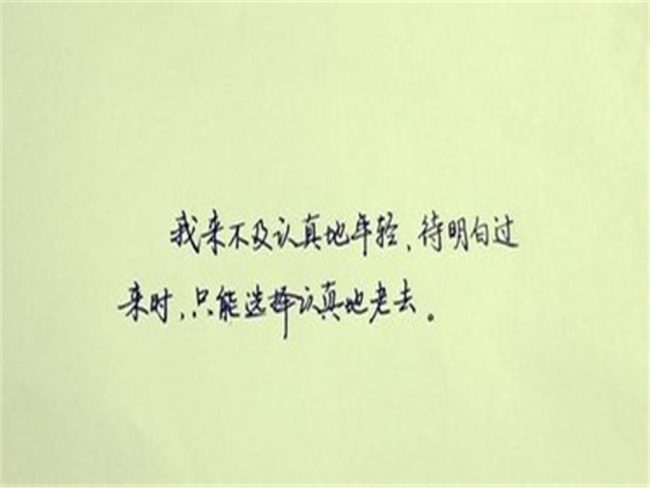 我来不及认真地年轻，待明白过
来时，只能选择认真地老去。